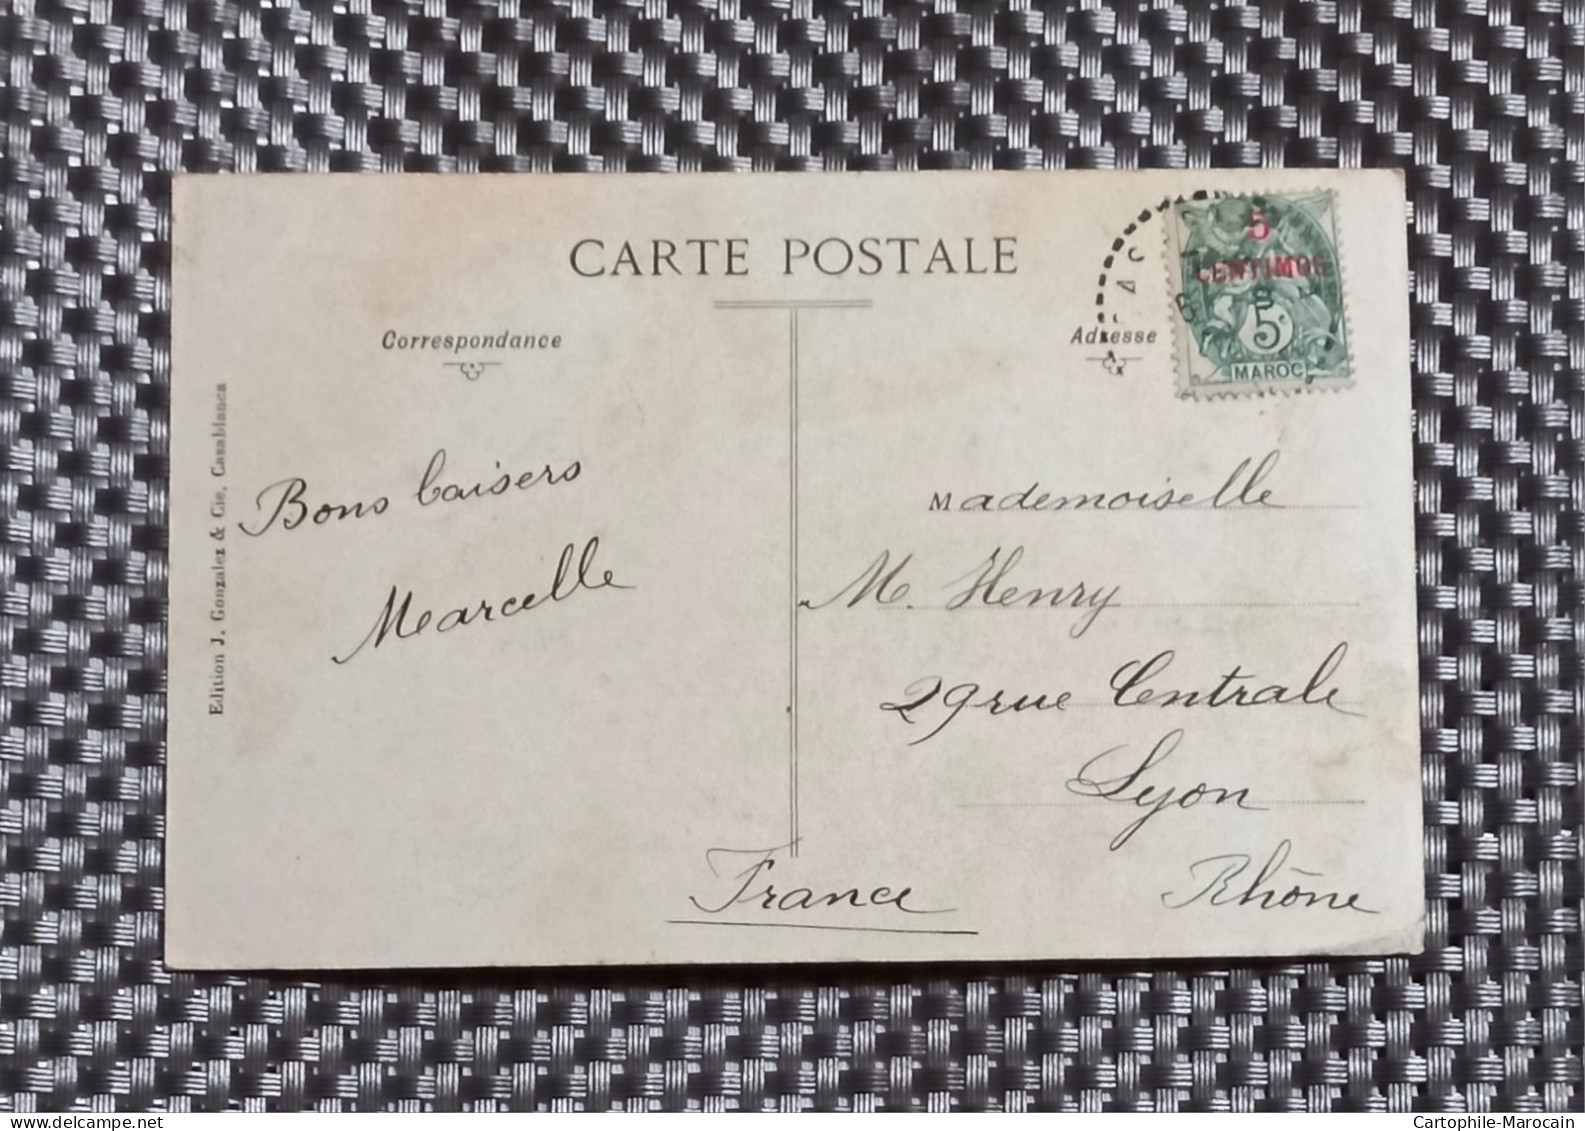 CARTE POSTALE
Correspondance
Adresse
5
CENTIMOS
5c
MAROC
Edition J. Gonzalez & Cie, Casablanca
Bons baisers
Marcelle
Mademoiselle
M. Henry
29 rue Centrale
Lyon
Rhône
France
Cartophile-Marocain